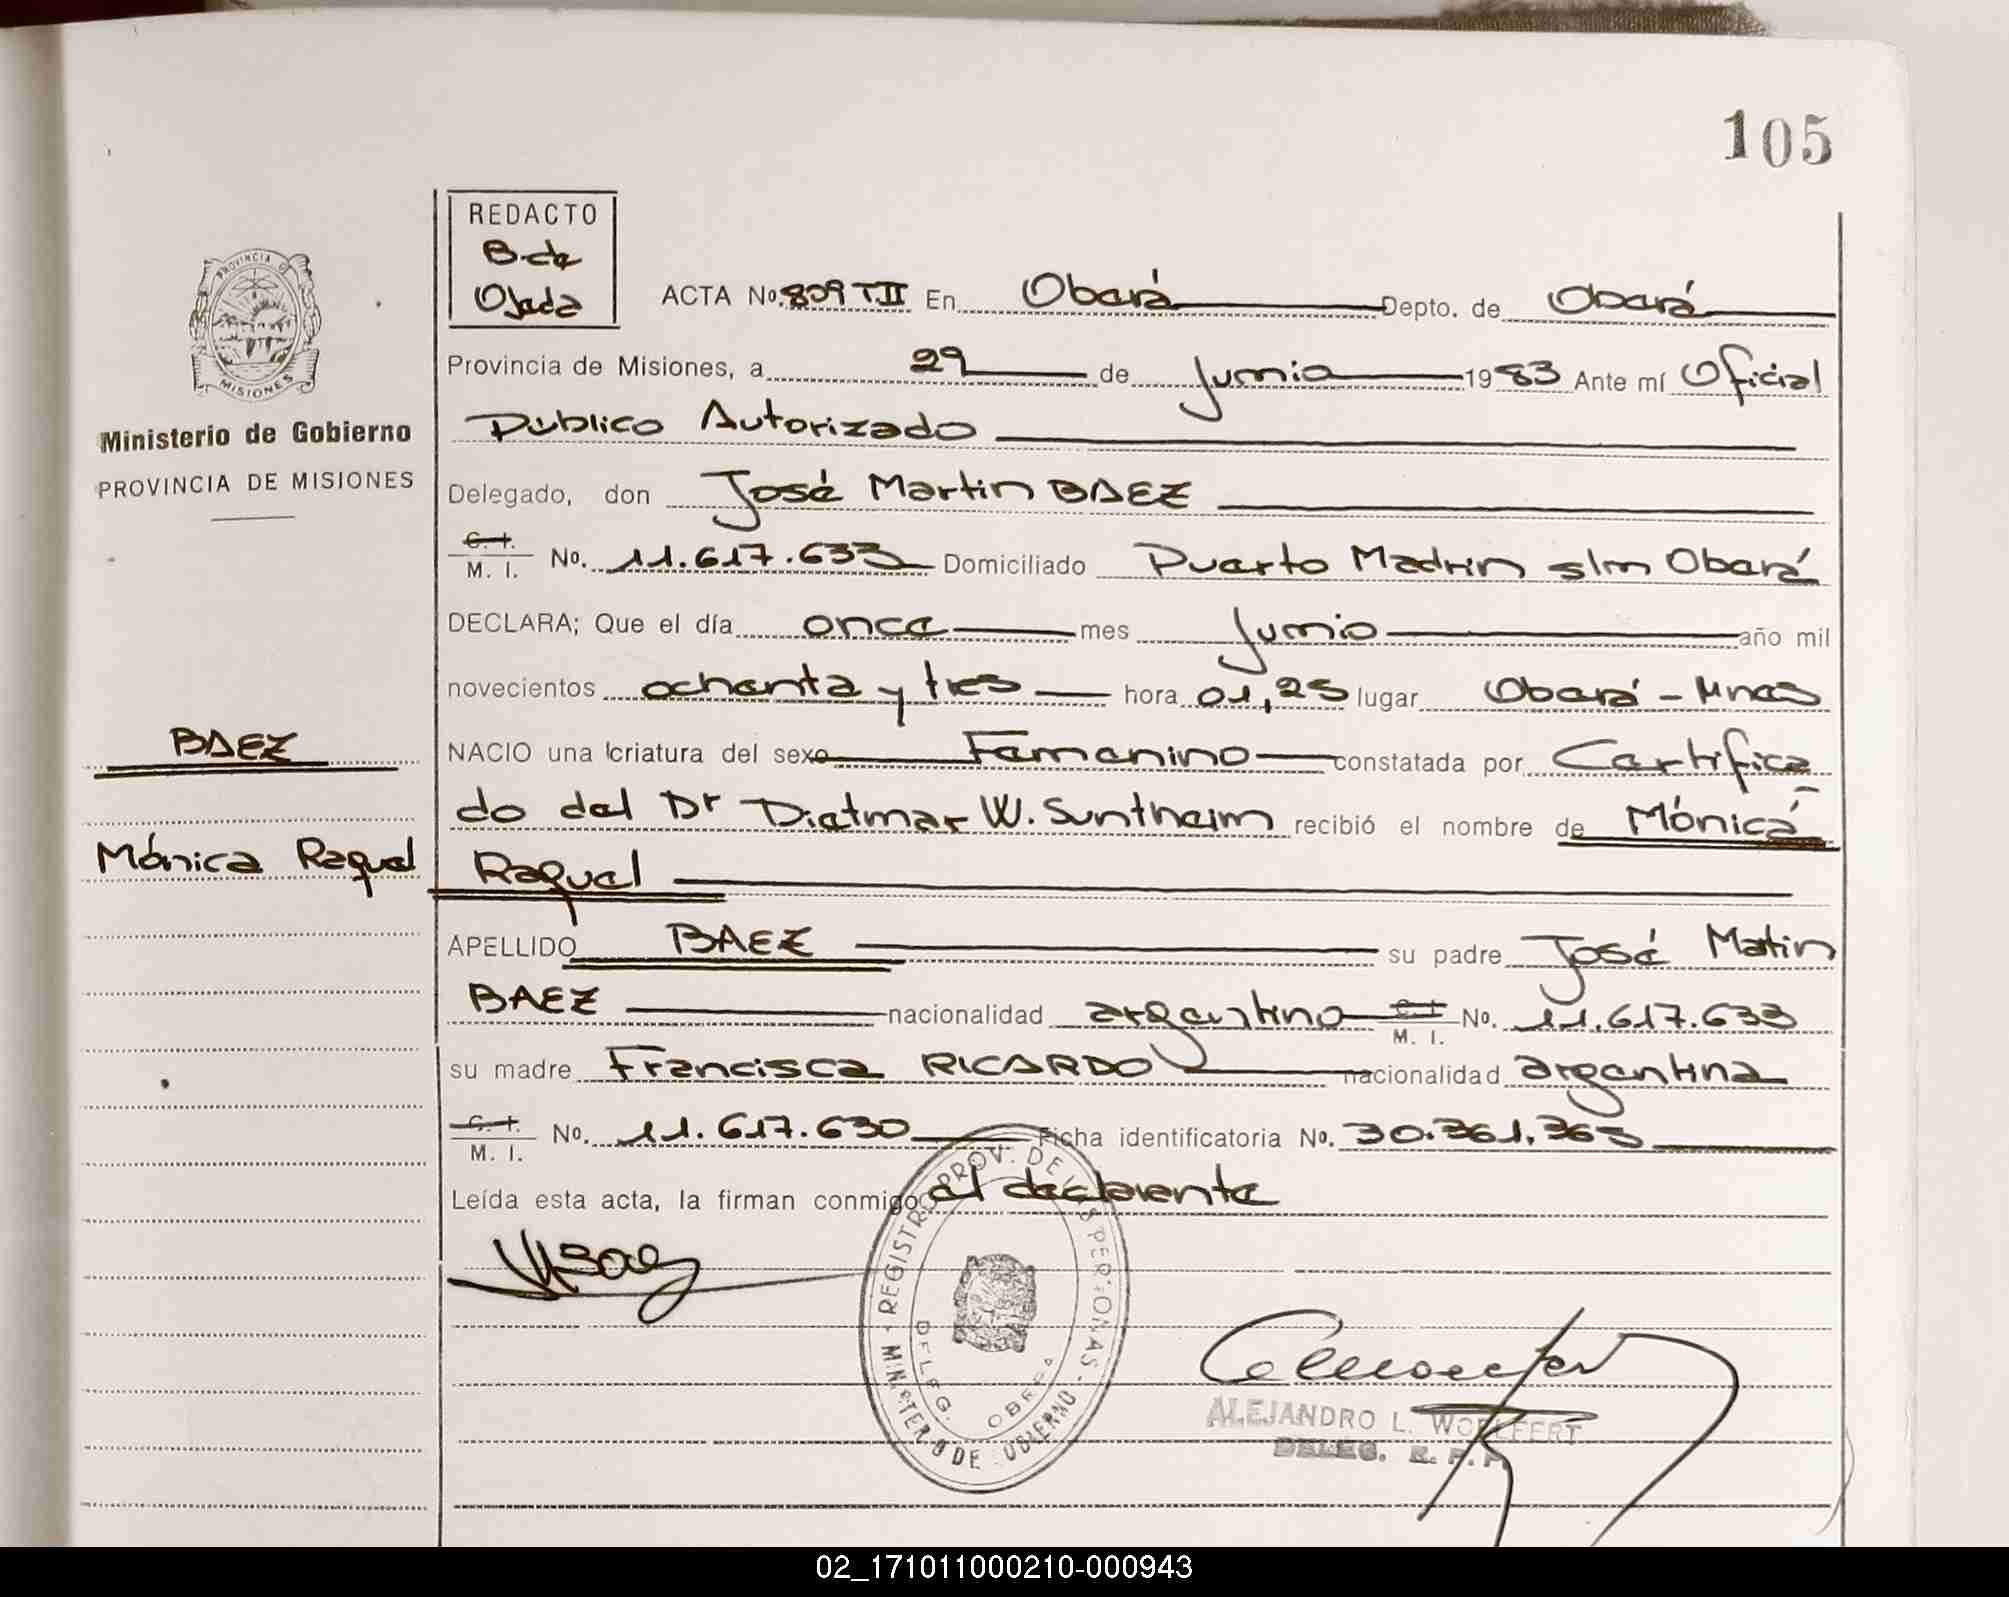 105
REDACTO
B. de
Ojeda
PROVINCIA DE
MISIONES
Ministerio de Gobierno
PROVINCIA DE MISIONES
ACTA No. 809 T.II En Oberá Depto. de Oberá
Provincia de Misiones, a 29 de Junio 1983 Ante mí Oficial
Publico Autorizado
Delegado, don José Martin BAEZ
C. I.
M. I. No. 11.617.633 Domiciliado Puerto Madrin s/n Oberá
DECLARA; Que el día once mes Junio año mil
novecientos ochenta y tres hora 01,25 lugar Oberá - Mnes
BAEZ
NACIO una criatura del sexo Femenino constatada por Certifica
do del Dr Dietmar W. Suntheim recibió el nombre de Mónica
Mónica Raquel
Raquel
APELLIDO BAEZ su padre José Matin
BAEZ nacionalidad argentino C. I. M. I. No. 11.617.633
su madre Francisca RICARDO nacionalidad argentina
C. I.
M. I. No. 11.617.630 Ficha identificatoria No. 30.361.365
Leída esta acta, la firman conmigo el declarente
REGISTRO PROV. DE LAS PERSONAS - MINISTERIO DE GOBIERNO
DELEG. OBERA
ALEJANDRO L. WOELFERT
DELEG. R. P. P.
02_171011000210-000943